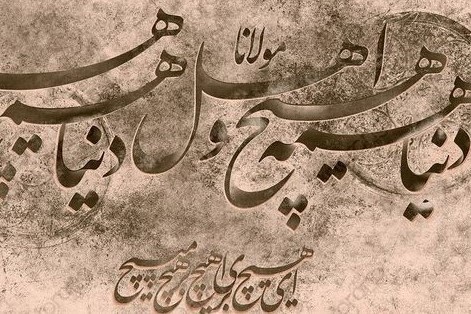 مولانا
دنیا همه هیچ و اهل دنیا همه هیچ
ای هیچ برای هیچ بر هیچ مپیچ